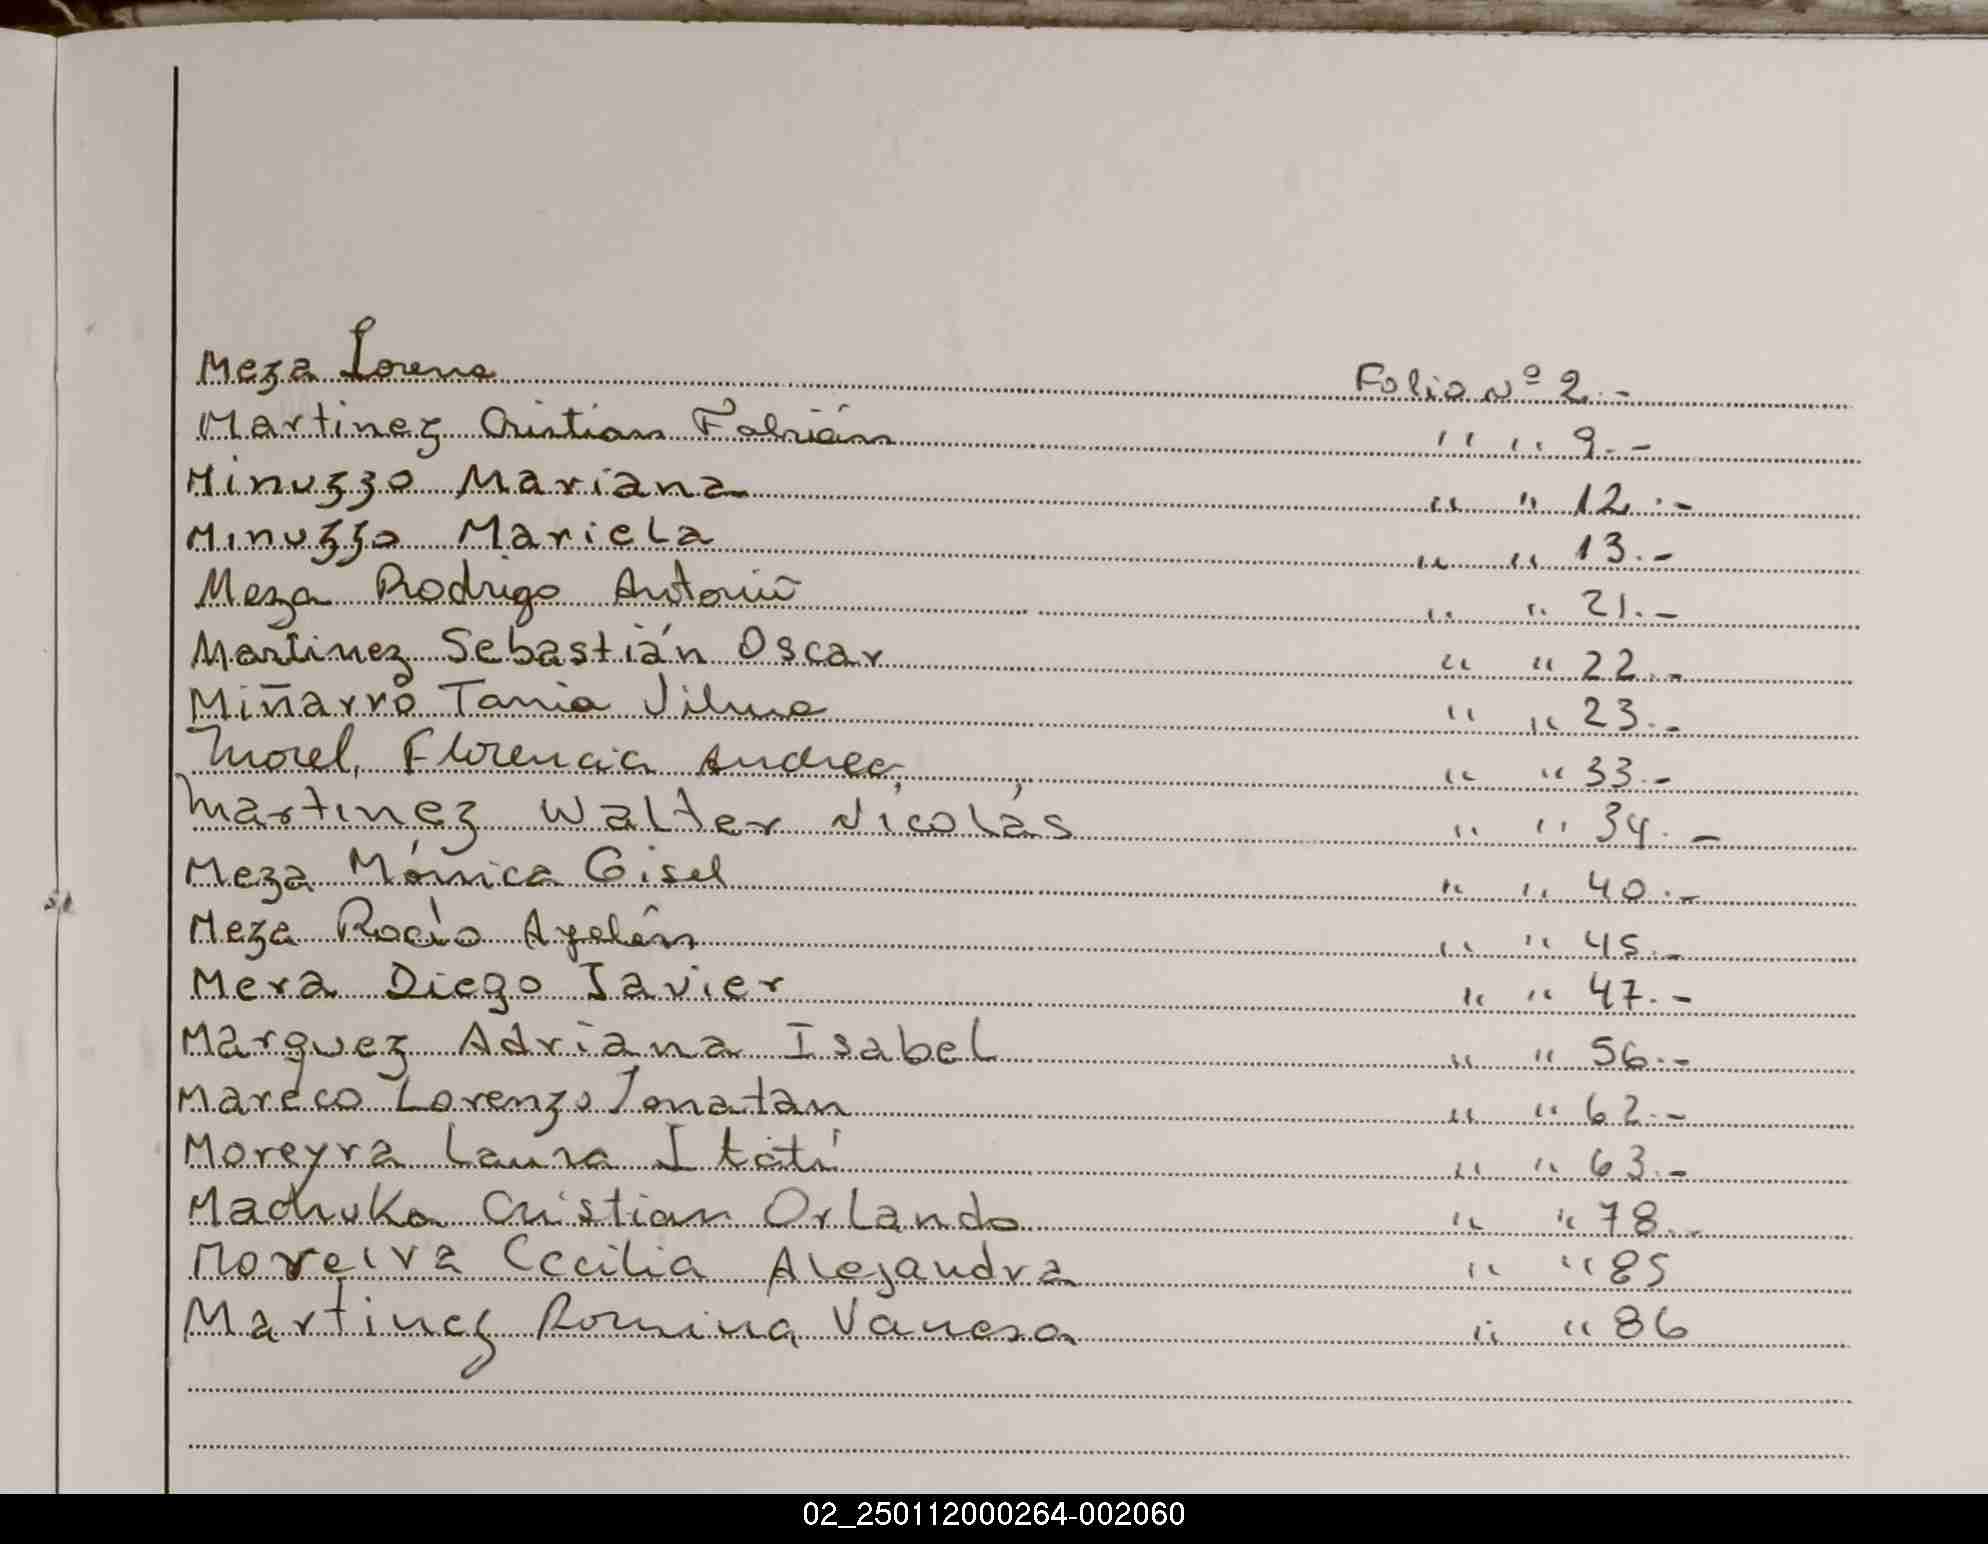 Meza Lorena Folio Nº 2.-
Martinez Cristian Fabián " " 9.-
Minuzzo Mariana " " 12.-
Minuzzo Mariela " " 13.-
Meza Rodrigo Antonio " " 21.-
Martinez Sebastián Oscar " " 22.-
Miñarro Tania Vilma " " 23.-
Morel, Florencia Andrea, " " 33.-
Martinez Walter Nicolás " " 34.-
Meza Mónica Gisel " " 40.-
Meza Rocío Ayelén " " 45.-
Mera Diego Javier " " 47.-
Marquez Adriana Isabel " " 56.-
Mareco Lorenzo Jonatan " " 62.-
Moreyra Laura Itatí " " 63.-
Machuka Cristian Orlando " " 78.-
Moreira Cecilia Alejandra " " 85
Martinez Romina Vanesa " " 86
02_250112000264-002060